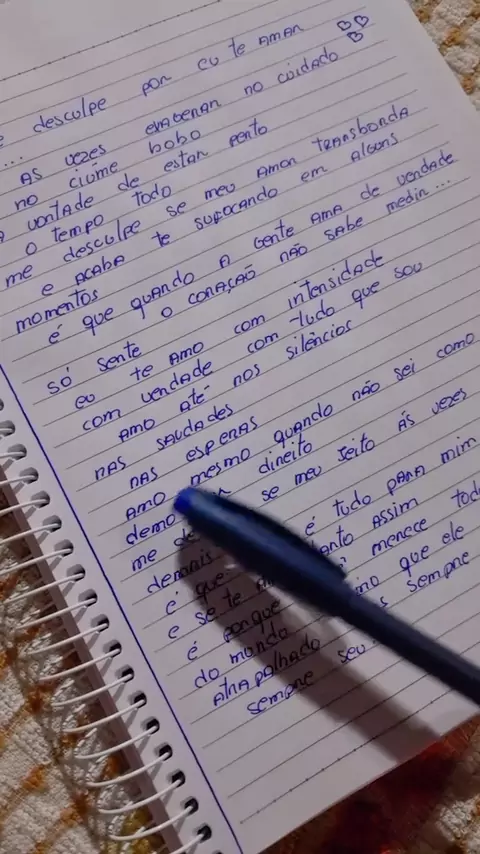 e desculpe por eu te amar
...
as vezes exagerar no cuidado
no ciúme bobo
a vontade de estar perto
o tempo todo
me desculpe se meu amor transborda
e acaba te sufocando em alguns
momentos
é que quando a gente ama de verdade
o coração não sabe medir...
só sente
eu te amo com intensidade
com verdade com tudo que sou
amo até nos silêncios
nas saudades
nas esperas
amo mesmo quando não sei como
direito
me se meu jeito ás vezes
demais
é que é tudo para mim
e se te tanto assim
é porque merece todo
do mundo que ele
atrapalhado
sempre seu sempre